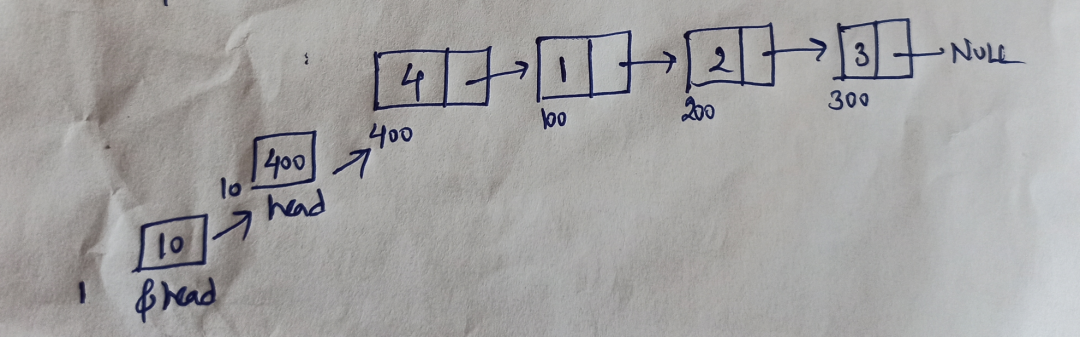 4 1 2 3 NULL
400 100 200 300
400
10 head
10
1 &head